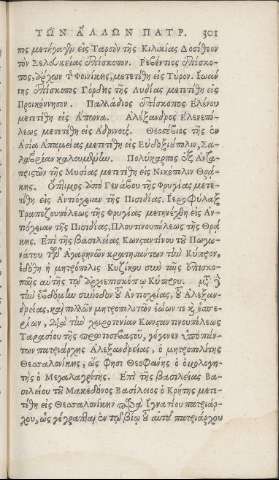 ΤΩΝ ΑΛΛΩΝ ΠΑΤΡ. 301
πος μετήνεγκ εἰς Ταρσὸν τῆς Κιλικίας Δοσίθεον
τὸν Σελευκείας ἐπίσκοπον. Ῥευέντιος ἐπίσκο-
πος, Φοινίκης, μετετέθη εἰς Τύρον. Ἰωάν-
νης ἐπίσκοπος Γόρδης τῆς Λυδίας μετετέθη εἰς
Προικόνησον. Παλλάδιος ἐπίσκοπος Ἑλένου
μετετέθη εἰς Ἄπονα. Ἀλέξανδρος Ἑλενεπό-
λεως μετετέθη εἰς Ἀδριανοὺς. Θεοσέβιος τῆς ἐν
Ἀσίᾳ Ἀπαμείας μετετέθη εἰς Εὐδοξιόπολιν, Σα-
λαβρίαν καλουμένην. Πολύκαρπος ἐξ Ἀνζα-
πεισσῶν τῆς Μυσίας μετετέθη εἰς Νικόπολιν Θρά-
κης. Ὄπιμος ἀπὸ Γενδάθου τῆς Φρυγίας μετε-
τέθη εἰς Ἀντιόχειαν τῆς Πισιδίας. Ἱεροφύλαξ
Τραπεζουπόλεως τῆς Φρυγίας μετηνέχθη εἰς Ἀν-
τιόχειαν τῆς Πισιδίας, Πλουτινουπόλεως τῆς Θρά-
κης. Ἐπὶ τῆς βασιλείας Κωνσταντίνου τοῦ Πωγω-
νάτου τῶν Ἀγαρηνῶν κρατησάντων τὴν Κύπρον,
ἐδόθη ἡ μητρόπολις Κυζίκου σὺν τοῖς ἐπισκό-
ποις αὐτῆς τῷ Ἀρχιεπισκόπῳ Κύπρου. μετὰ
τὴν ἑβδόμην σύνοδον ὁ Ἀντιοχείας, ὁ Ἀλεξαν-
δρείας, καὶ πολλῶν μητροπολιτῶν ἑῴων τε καὶ ἑσπε-
ρίων, διὰ τὴν χειροτονίαν Κωνσταντινουπόλεως
Ταρασίου τῆς πρωτοασηκρῆτις, γέγονεν ὑπὸ πάν-
των πατριάρχης Ἀλεξανδρείας, ὁ μητροπολίτης
Θεσσαλονίκης, ὥς φησι Θεοφάνης ὁ ὁμολογη-
τὴς ὁ Μεγαλαγρίτης. Ἐπὶ τῆς βασιλείας Βα-
σιλείου τοῦ Μακεδόνος Βασίλειος ὁ Κρήτης μετε-
τέθη εἰς Θεσσαλονίκην παρὰ Ἰγνατίου πατριάρ-
χου, ὡς γέγραπται ἐν τῷ βίῳ τοῦ αὐτοῦ πατριάρχου